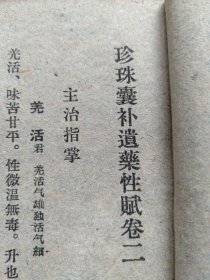 珍珠囊补遗藥性赋卷二
主治指掌
羌活 君 羌活气雄独活气細
羌活、味苦甘平。性微温無毒。升也